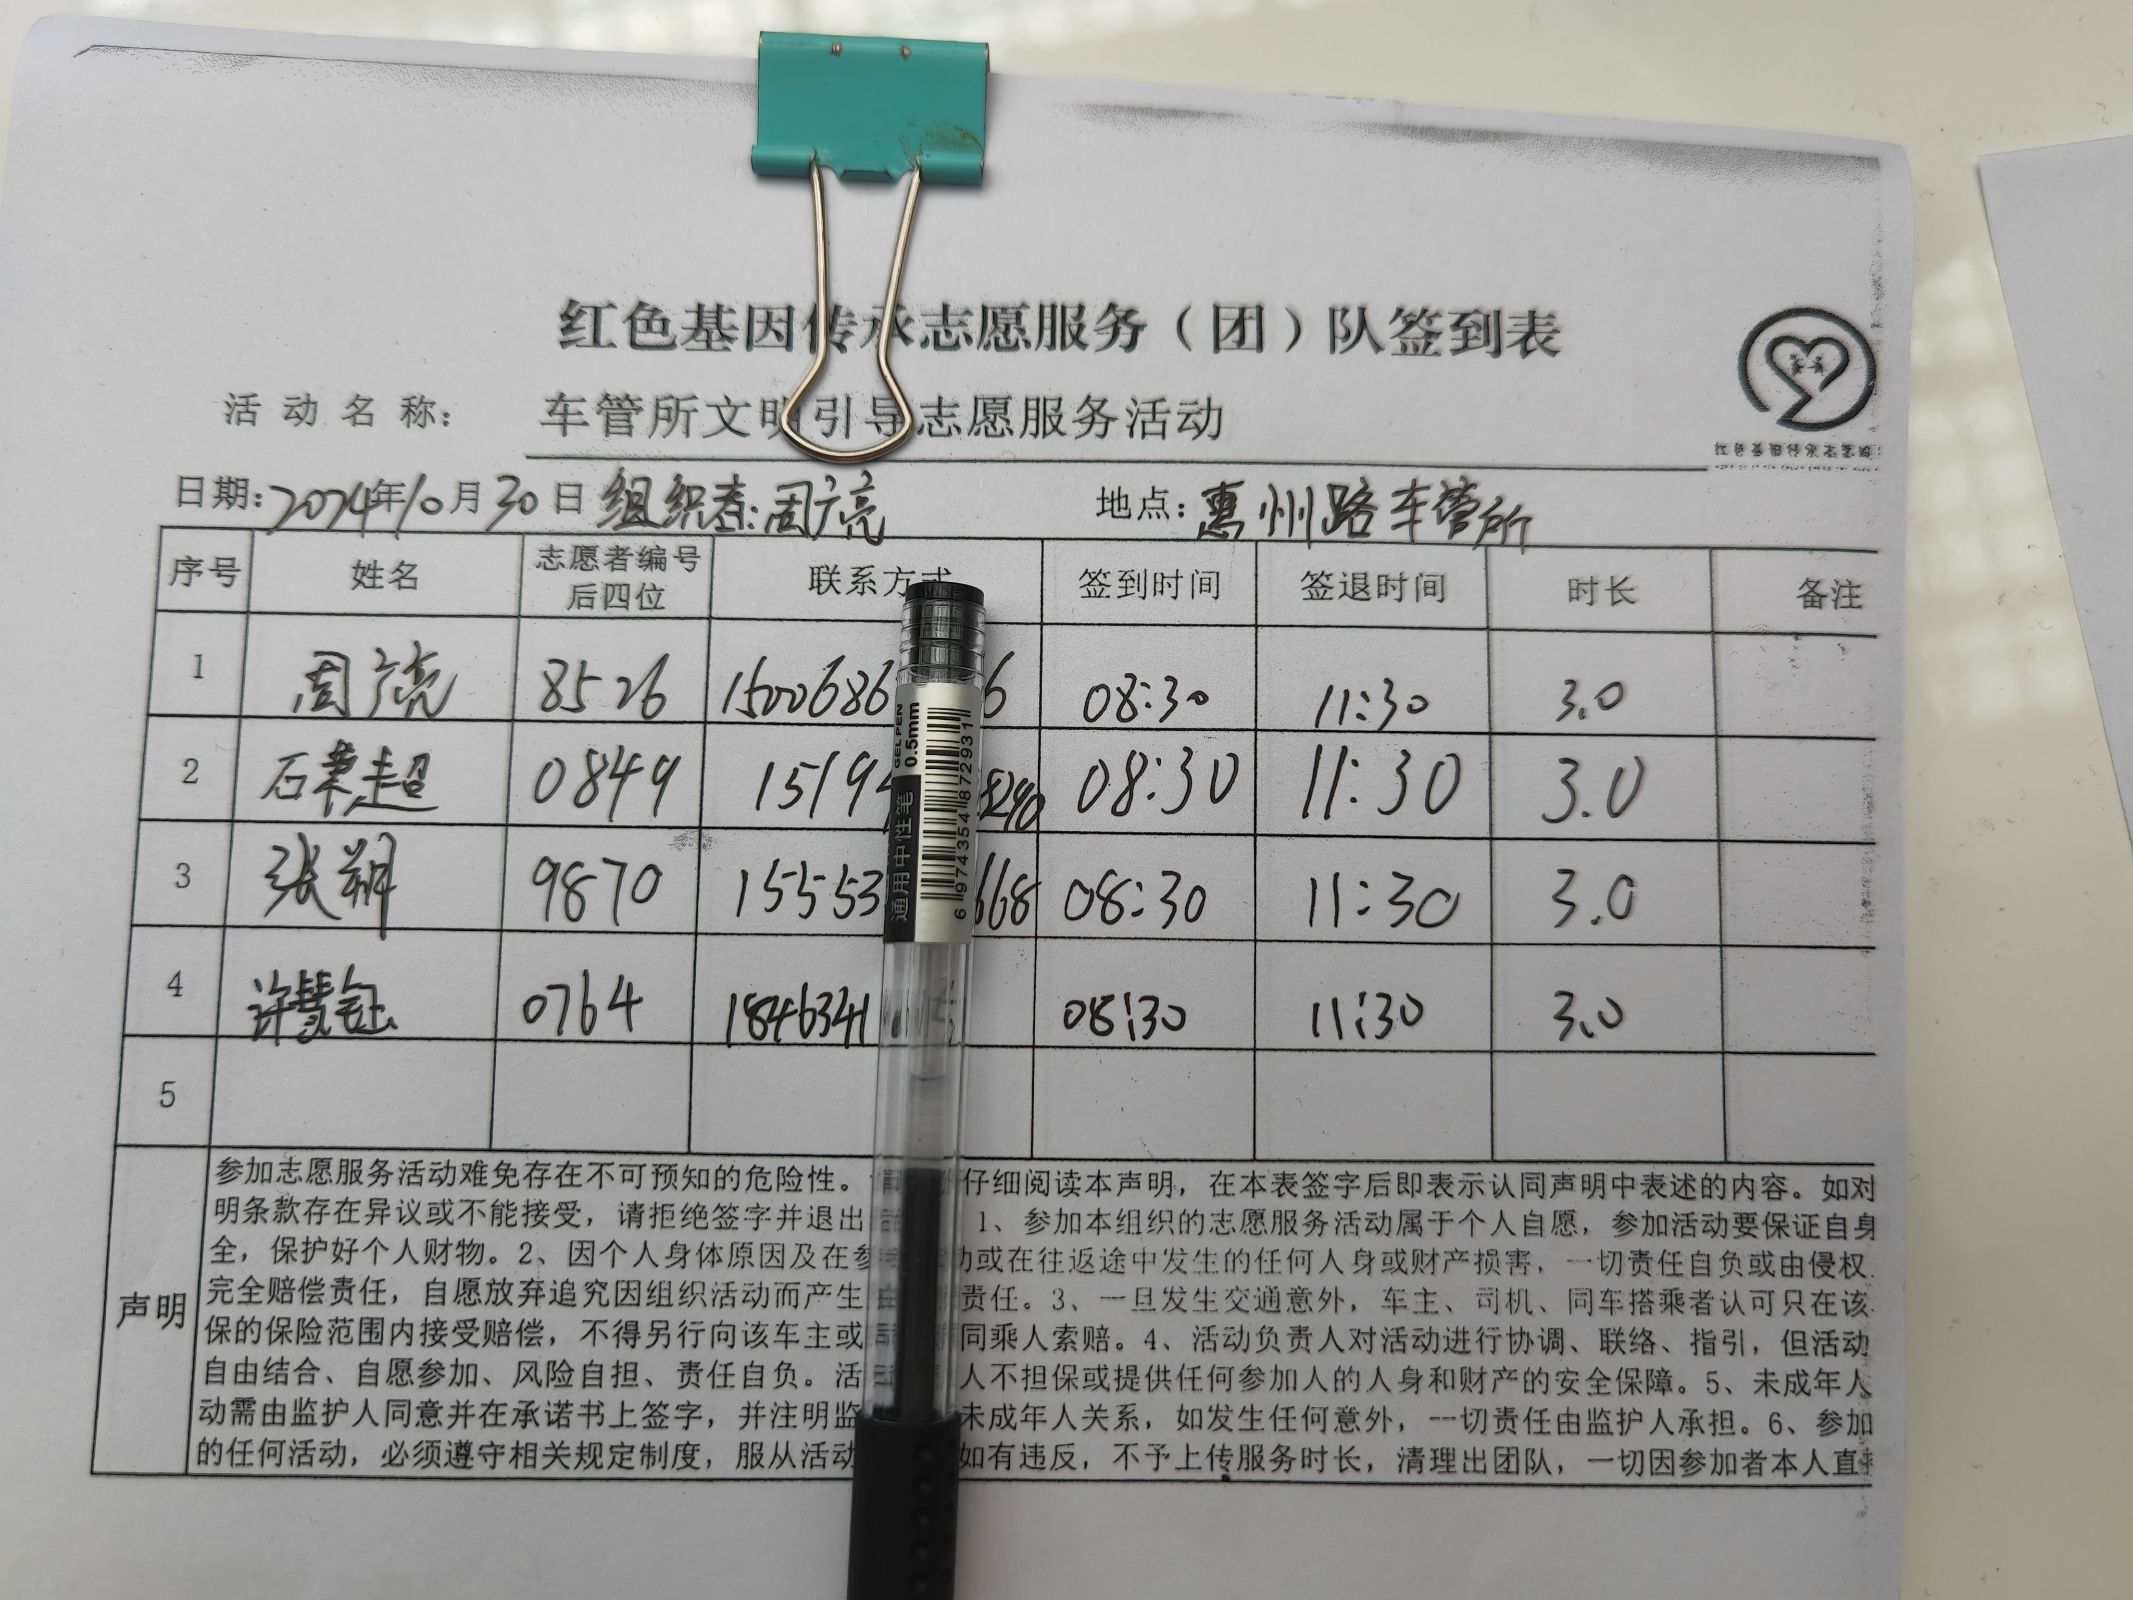 红色基因传承志愿服务（团）队签到表
活动名称： 车管所文明引导志愿服务活动
日期：2024年10月30日 组织者：周广亮 地点：惠州路车管所
序号 姓名 志愿者编号后四位 联系方式 签到时间 签退时间 时长 备注
1 周广亮 8526 1500686 6 08:30 11:30 3.0
2 石荣超 0849 1519 8290 08:30 11:30 3.0
3 张朔 9870 15553 668 08:30 11:30 3.0
4 许慧钰 0764 1846341 08:30 11:30 3.0
5
声明
参加志愿服务活动难免存在不可预知的危险性。 仔细阅读本声明，在本表签字后即表示认同声明中表述的内容。如对
明条款存在异议或不能接受，请拒绝签字并退出 1、参加本组织的志愿服务活动属于个人自愿，参加活动要保证自身
全，保护好个人财物。2、因个人身体原因及在参 动或在往返途中发生的任何人身或财产损害，一切责任自负或由侵权
完全赔偿责任，自愿放弃追究因组织活动而产生 责任。3、一旦发生交通意外，车主、司机、同车搭乘者认可只在该
保的保险范围内接受赔偿，不得另行向该车主或 同乘人索赔。4、活动负责人对活动进行协调、联络、指引，但活动
自由结合、自愿参加、风险自担、责任自负。活 人不担保或提供任何参加人的人身和财产的安全保障。5、未成年人
动需由监护人同意并在承诺书上签字，并注明监 未成年人关系，如发生任何意外，一切责任由监护人承担。6、参加
的任何活动，必须遵守相关规定制度，服从活动 如有违反，不予上传服务时长，清理出团队，一切因参加者本人直
通用中性笔
GELPEN
0.5mm
6 974354 872931